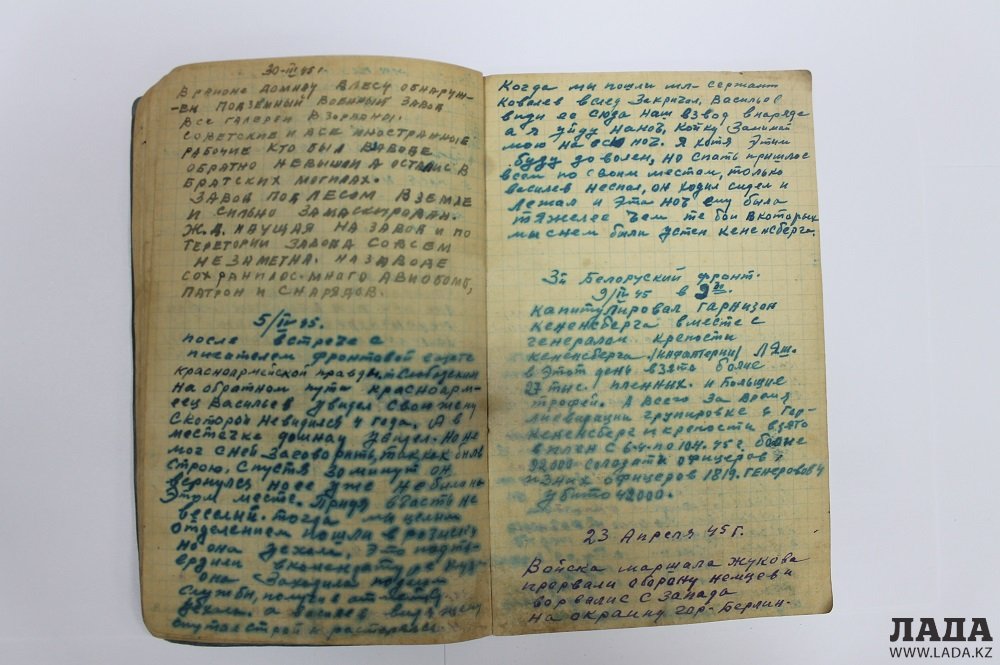 30-III 45г.
В районе домнау в лесу обнаруж-
ен подземный военный завод
Все галереи взорваны.
Советские и все иностранные
рабочие кто был в заводе
обратно невышли а остались в
братских могилах.
Завод под лесом в земле
и сильно замаскирован.
Ж.Д. идущая на завод и по
теретории завода совсем
незаметна. На заводе
сохранилос много авиобомб,
патрон и снарядов.
5/IV 45.
после встречи с
писателем фронтовой газеты
красноармейской правды, т. Слободским
на обратном пути красноарм-
еец Васильев увидел свою жену
с которой невиделся 4 года. А в
местечке домнау увидел. Но не
мог с ней заговорить, так как был в
строю. Спустя 30 минут он
вернулся но ее уже небыло на
этом месте. Придя в часть не
веселый. тогда мы целым
отделением пошли в розыск
но она уехала, это подтв-
ердили в комендатуре
она заходила
службы, получив
уехала. а василев видя жену
Когда мы пошли мл. сержант
Ковалев вслед закричал, Васильев
веди ее сюда наш взвод внаряде
а я уйду койку занимай
мою на всю ноч. Я хотя этим
буду доволен, но спать пришлос
всем по своим местам, только
василев неспал, он ходил сидел и
лежал и эта ноч ему была
тяжелее чем те бои в которых
мы снем были у стен кененсберга.
3й Белоруский фронт.
9/IV 45 в
капитулировал гарнизон
кененсберга вместе с
генералом крепости
кененсберга /инфантерии/ Ляш.
в этот день взято боле
27 тыс. пленных. и большие
трофеи. А всего за время
ликвидации групировке в гор-
кененсберг и крепости взято
в плен с 6.4. по 10.4. 45 г. более
92000 солдат и офицеров,
из них офицеров 1819. генеровов 4
убито 42000.
23 Апреля 45 г.
Войска маршала Жукова
прорвали оборону немцев и
ворвалис с запада
на окраину гор- Берлин-
ЛАДА
WWW.LADA.KZ